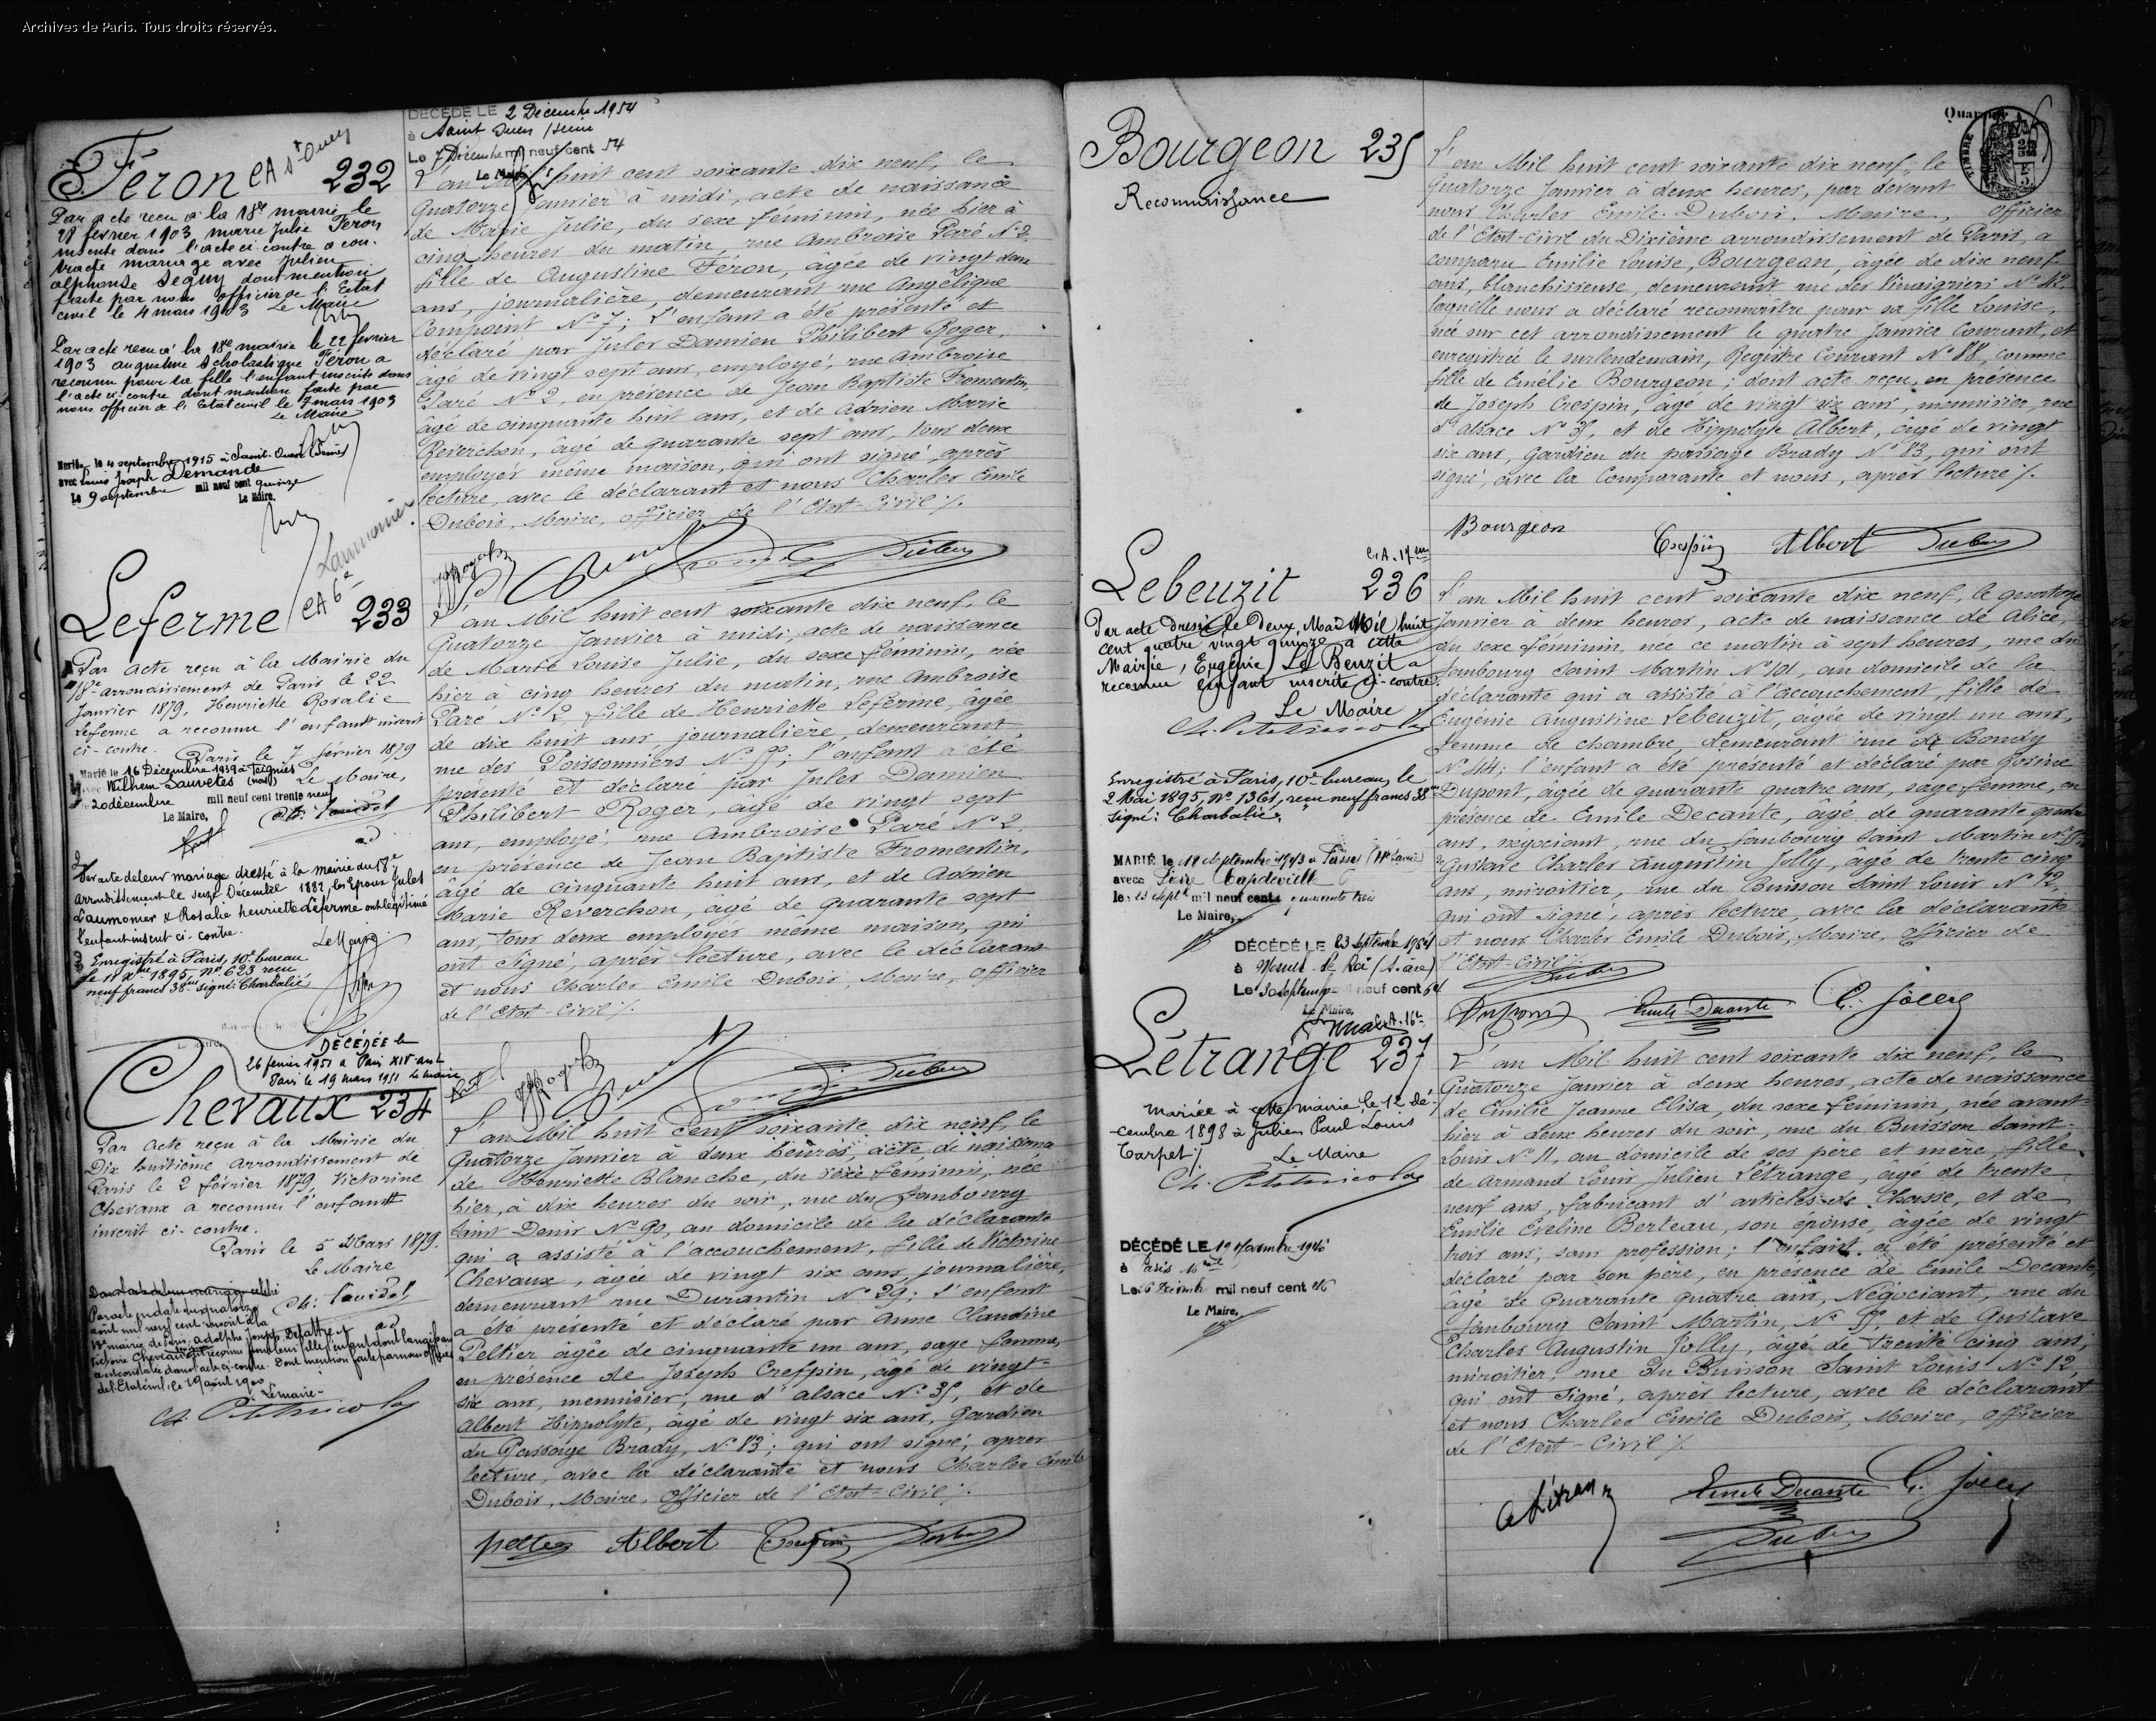 Archives de Paris. Tous droits réservés.
DÉCÉDÉ LE 2 Décembre 1954
à Saint Ouen /Seine
Le 7 Décembre mil neuf cent 54
Le Maire
Féron CA St Ouen 232
Par acte reçu à la 18e mairie le
28 février 1903, marie Julie Féron
inscrite dans l'acte ci contre a con-
tracté mariage avec Julien
alphonse Seguy dont mention
faite par nous officier de l'Etat
civil le 4 mars 1903 Le Maire
Par acte reçu à la 18e mairie le 22 février
1903 augustine Scholastique Féron a
reconnu pour sa fille l'enfant inscrite dans
l'acte ci-contre dont mention faite par
nous officier de l'Etat civil le 7 mars 1903
Le Maire
Mariée le 4 septembre 1915 à Saint-Ouen (Seine)
avec Louis Joseph Demande
Le 9 septembre mil neuf cent quinze
Le Maire,
L'an Mil huit cent soixante dix neuf, le
Quatorze Janvier à midi, acte de naissance
de Marie Julie, du sexe féminin, née hier à
cinq heures du matin, rue Ambroise Paré No 2,
fille de Augustine Féron, âgée de vingt deux
ans, journalière, demeurant rue Angélique
Compoint No 7; L'enfant a été présenté et
déclaré par Jules Damien Philibert Roger,
âgé de vingt sept ans, employé, rue Ambroise
Paré No 2, en présence de Jean Baptiste Fromentin,
âgé de cinquante huit ans, et de Adrien Marie
Reverchon, âgé de quarante sept ans, tous deux
employés même maison, qui ont signé, après
lecture, avec le déclarant et nous Charles Emile
Dubois, Maire, officier de l'Etat-Civil ./.
Laumonier
Leferme CA 6e 233
Par acte reçu à la Mairie du
18e arrondissement de Paris le 22
Janvier 1879, Henriette Rosalie
Leferme a reconnu l'enfant inscrit
ci-contre.
Paris le 7 février 1879
Le Maire,
Marié le 16 Décembre 1939 à Teignies
avec Wilhem Sauvetes
20 décembre mil neuf cent trente neuf
Le Maire,
Par acte de leur mariage dressé à la mairie du 18e
arrondissement le seize Décembre 1882, les Epoux Jules
Laumonier & Rosalie henriette Leferme ont légitimé
l'enfant inscrit ci-contre.
Le Maire
Enregistré à Paris, 10e bureau
le 11 Xbre 1895, No 623 reçu
neuf francs 38 signé: Charbalié
L'an Mil huit cent soixante dix neuf, le
Quatorze Janvier à midi, acte de naissance
de Marie Louise Julie, du sexe féminin, née
hier à cinq heures du matin, rue Ambroise
Paré No 2, fille de Henriette Leferme, âgée
de dix huit ans, journalière, demeurant
rue des Poissonniers No 55; l'enfant a été
présenté et déclaré par Jules Damien
Philibert Roger, âgé de vingt sept
ans, employé, rue Ambroise Paré No 2,
en présence de Jean Baptiste Fromentin,
âgé de cinquante huit ans, et de Adrien
Marie Reverchon, âgé de quarante sept
ans, tous deux employés même maison, qui
ont signé, après lecture, avec le déclarant
et nous Charles Emile Dubois, Maire, officier
de l'Etat-Civil ./.
DÉCÉDÉE le
26 fevrier 1951 à Paris XIVe arrt
Paris le 19 mars 1951 Le maire
Chevaux 234
Par acte reçu à la Mairie du
Dix huitième arrondissement de
Paris le 2 février 1879, Victorine
Chevaux a reconnu l'enfant
inscrit ci-contre.
Paris le 5 Mars 1879.
Le Maire
Par acte en date du quatorze
août mil neuf cent inscrit à la
mairie de Paris, Adolphe Joseph Defattre et
Victorine Chevaux ont reconnu pour leur fille l'enfant dont la naissance
est constatée dans l'acte ci-contre. Dont mention faite par nous officier
de l'Etat civil, le 19 août 1900
Le maire
L'an Mil huit cent soixante dix neuf, le
Quatorze Janvier à deux heures, acte de naissance
de Henriette Blanche, du sexe féminin, née
hier, à dix heures du soir, rue du faubourg
Saint Denis No 90, au domicile de la déclarante
qui a assisté à l'accouchement, fille de Victorine
Chevaux, âgée de vingt six ans, journalière,
demeurant rue Durantin No 29; l'enfant
a été présenté et déclaré par Anne Claudine
Peltier âgée de cinquante un ans, sage femme,
en présence de Joseph Crespin, âgé de vingt-
six ans, menuisier, rue d'alsace No 35, et de
Albert Hippolyte, âgé de vingt six ans, Gardien
du Passage Brady, No 83; qui ont signé, après
lecture, avec la déclarante et nous Charles Emile
Dubois, Maire, Officier de l'Etat-Civil ./.
Albert Crespin Dubois
Bourgeon 235
Reconnaissance
L'an Mil huit cent soixante dix neuf, le
Quatorze Janvier à deux heures, par devant
nous Charles Emile Dubois, Maire, officier
de l'Etat-Civil du Dixième arrondissement de Paris, a
comparu Emilie Louise, Bourgeon, âgée de dix neuf
ans, blanchisseuse, demeurant rue des Vinaigriers No 42.
laquelle nous a déclaré reconnaître pour sa fille Louise,
née sur cet arrondissement le quatre Janvier Courant, et
enregistrée le surlendemain, Registre Courant No 88, comme
fille de Emélie Bourgeon; dont acte reçu, en présence
de Joseph Crespin, âgé de vingt six ans, menuisier, rue
d'alsace No 35, et de Hippolyte Albert, âgé de vingt
six ans, gardien du passage Brady No 83, qui ont
signé, avec la Comparante et nous, après lecture ./.
Bourgeon
Crespin Albert Dubois
C.A. 17em
Lebeuzit 236
Par acte Dressé le Deux Mai Mil huit
cent quatre vingt quinze à cette
Mairie, Eugénie Le Beuzit a
reconnu enfant inscrite ci-contre.
Le Maire
Enregistré à Paris, 10e bureau, le
2 Mai 1895, No 1361, reçu neuf francs 38
Signé: Charbalié
MARIÉ le 18 septembre 1943 à
avec Pierre Capdevielle
le 23 Septe mil neuf cent quarante trois
Le Maire,
DÉCÉDÉ LE 23 Septembre 1954
à Mesnil-St
Le 30 Septembre mil neuf cent 54
Le Maire,
L'an Mil huit cent soixante dix neuf, le quatorze
Janvier à deux heures, acte de naissance de Alice,
du sexe féminin, née ce matin à sept heures, rue du
faubourg Saint Martin No 101, au domicile de la
déclarante qui a assisté à l'accouchement, fille de
Eugénie Augustine Lebeuzit, âgée de vingt un ans,
femme de chambre, demeurant rue de Bondy
No 44; l'enfant a été présenté et déclaré par Josine
Dupont, âgée de quarante quatre ans, sage-femme, en
présence de Emile Decante, âgé de quarante quatre
ans, négociant, rue du faubourg Saint Martin No 55
Gustave Charles Augustin Jolly, âgé de trente cinq
ans, miroitier, rue du Buisson Saint Louis No 12,
qui ont signé, après lecture, avec la déclarante
et nous Charles Emile Dubois, Maire, officier de
l'Etat-Civil ./.
Dubois
Dupont Emile Decante G. Jolly
C.A. 16e
Létrange 237
Mariée à cette mairie, le 12 dé-
-cembre 1898 à Julien Paul Louis
Carpet ./.
Le Maire
DÉCÉDÉ LE 19 Novembre 1946
à Paris
Le 6 Décembre mil neuf cent 46
Le Maire,
L'an Mil huit cent soixante dix neuf, le
Quatorze Janvier à deux heures, acte de naissance
de Emilie Jeanne Elisa, du sexe féminin, née avant-
hier à deux heures du soir, rue du Buisson Saint-
Louis No 11, au domicile de ses père et mère, fille
de Armand Louis Julien Létrange, âgé de trente
neuf ans, fabricant d'articles de Chasse, et de
Emilie Eveline Berteau, son épouse, âgée de vingt
trois ans, sans profession; l'enfant a été présenté et
déclaré par son père, en présence de Emile Decante,
âgé de Quarante quatre ans, Négociant, rue du
faubourg Saint Martin, No 55, et de Gustave
Charles Augustin Jolly, âgé de trente cinq ans,
miroitier, rue du Buisson Saint Louis No 12,
qui ont signé, après lecture, avec le déclarant
et nous Charles Emile Dubois, Maire, officier
de l'Etat-Civil ./.
Emile Decante G. Jolly
Dubois